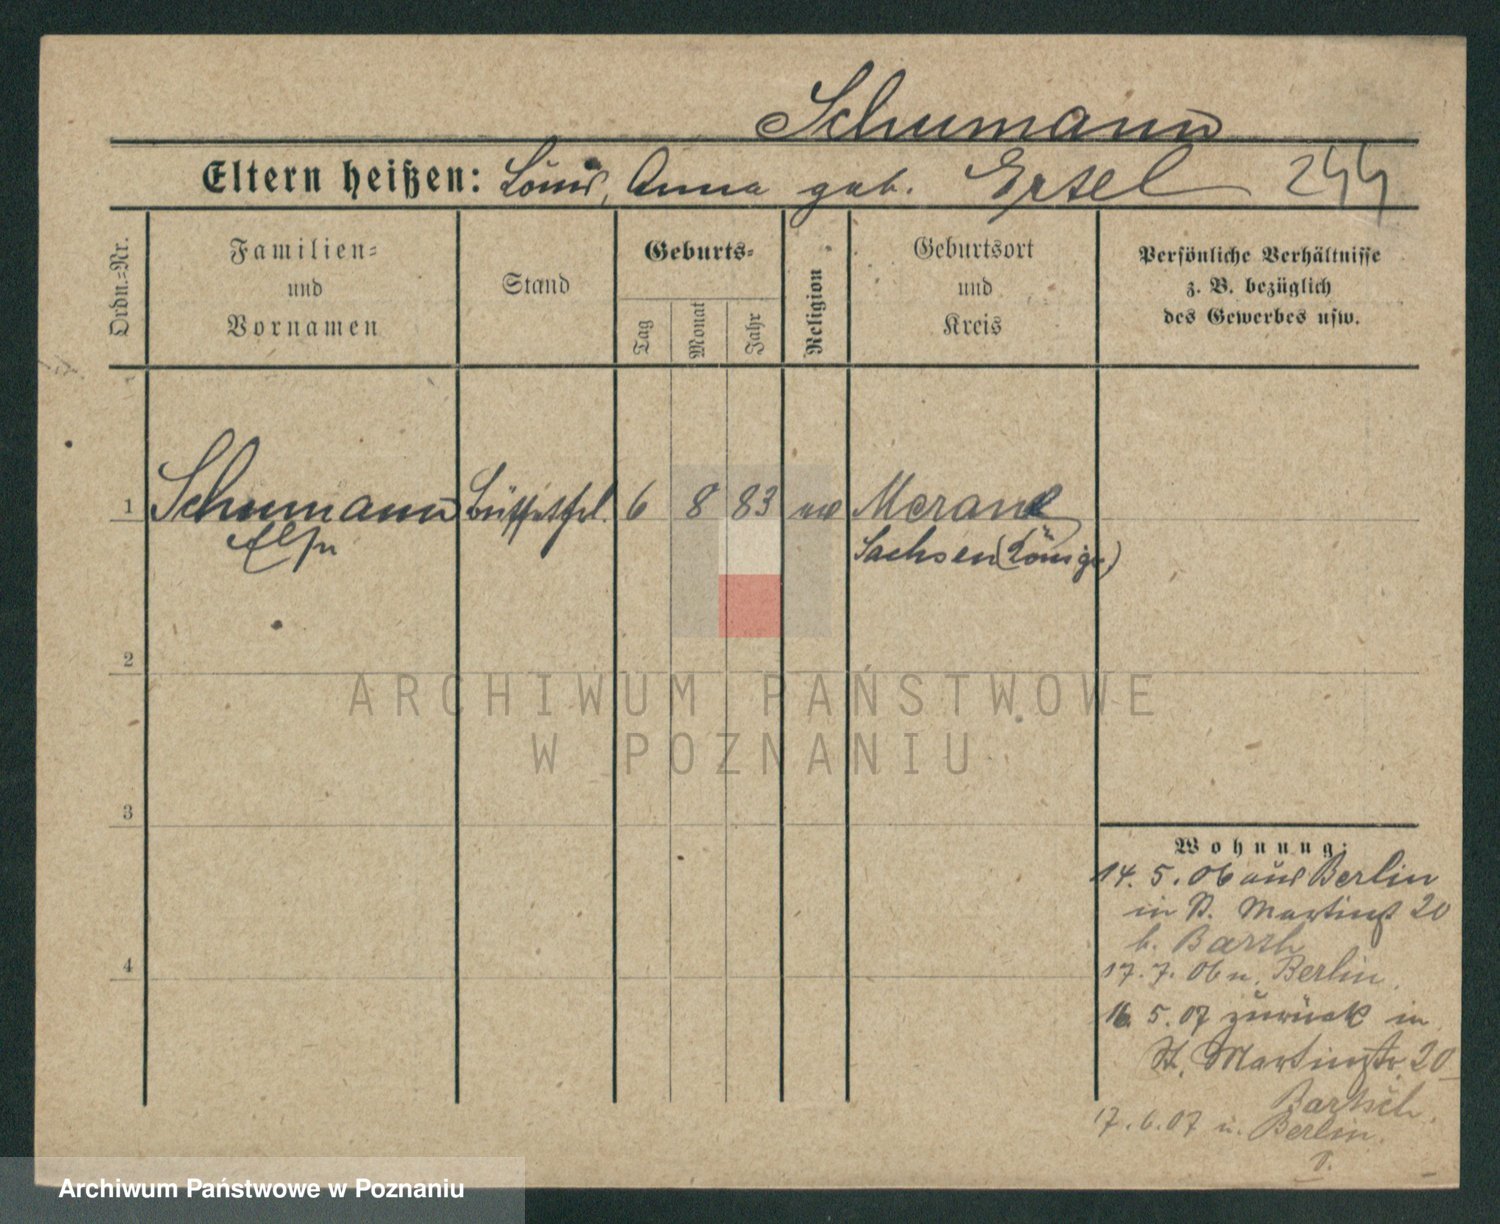 Schumann
Eltern heißen: Louis, Anna geb. Ertel 244
Ordn.=Nr.
Familien=
und
Vornamen
Stand
Geburts=
Tag
Monat
Jahr
Religion
Geburtsort
und
Kreis
Persönliche Verhältnisse
z. B. bezüglich
des Gewerbes usw.
1 Schumann Büffetfrl. 6 8 83 Meerane
Sachsen (Königr)
2
ARCHIWUM PAŃSTWOWE
W POZNANIU
3
4
Wohnung:
14. 5. 06 aus Berlin
in St. Martinst 20
b.
17. 7. 06 n. Berlin.
16. 5. 07 zurück in
St. Martinstr. 20
Bartsch.
17. 6. 07 n. Berlin.
Archiwum Państwowe w Poznaniu